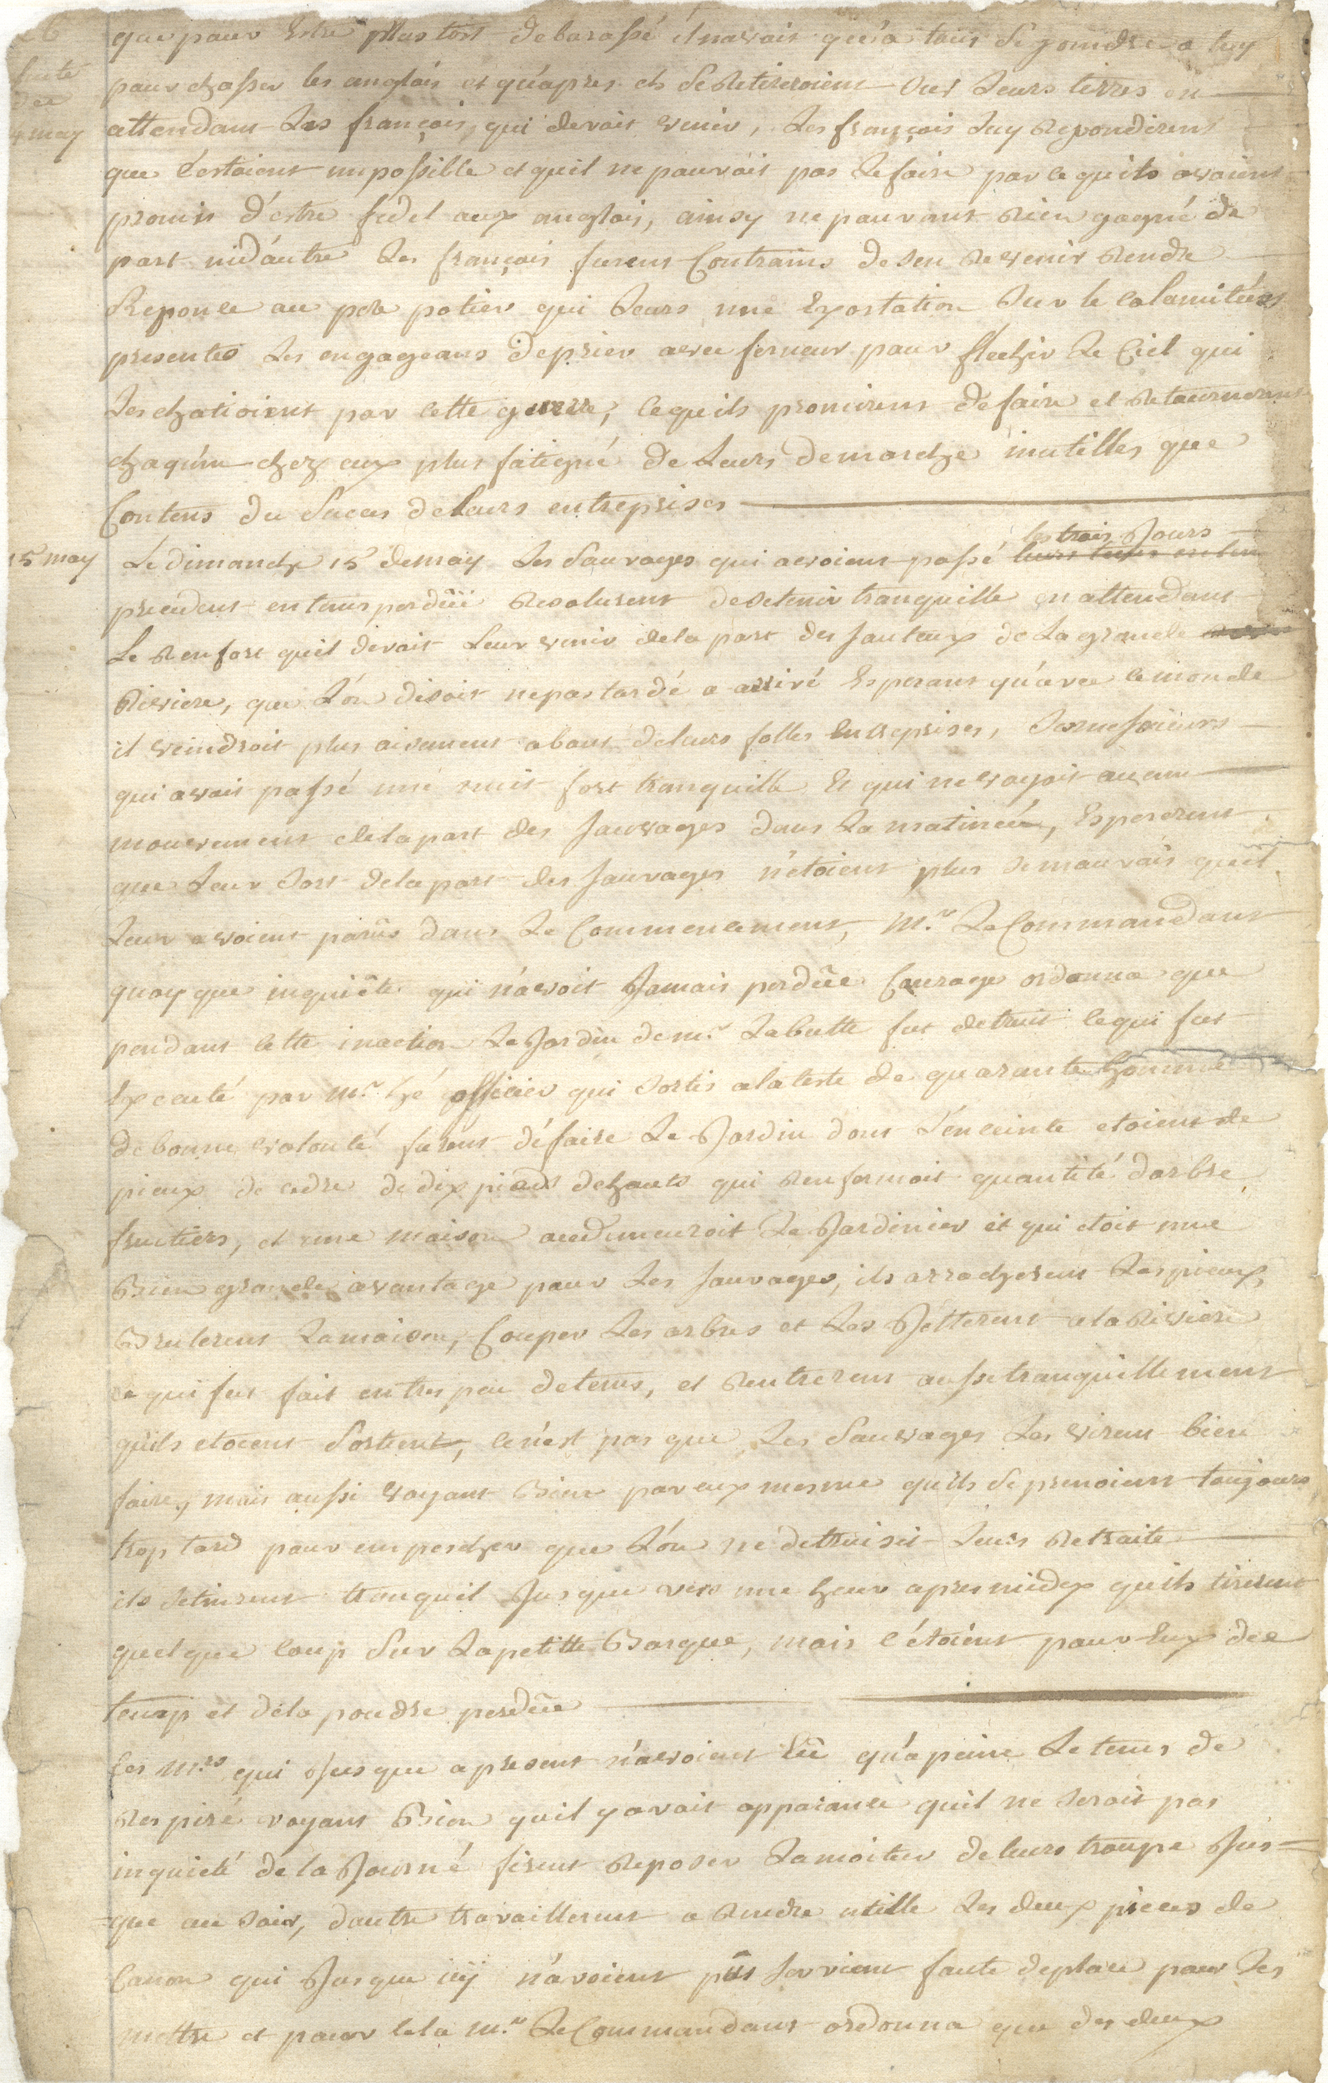 26
suite
du
14 may
que pour Estre plus tost debarassé il navoit qu'a tous se joindre a luy
pour chasser les anglois et qu'apres ils se Retireroient sur Leurs terres en
attendant Les françois, qui devoit venir, Les françois Luy Repondirent
que c'estoient impossible et quil ne pouvoit pas Le faire par ce quils avoient
promis d'estre fidel aux anglois, ainsy ne pouvant Rien gagné de
part nid'autre Les françois furent Contrains de sen Revenir Rendre
Reponce au pere potier qui Leurs une Exortation Sur le Calamitées
presentes Les engageans de prier avec ferveur pour flechir Le Ciel qui
Les chatioient par cette guerre, ce quils promirent de faire et Retournerent
chaqu'un chez eux plus fatigué de Leurs demarche inutilles que
Contens du Succes de Leurs entreprises
15 may
Le dimanche 15 de may Les Sauvages qui avoient passé les trois Jours
precedent en tems perdüe Resolurent de se tenir tranquille en attendant
Le Renfort quil devoit Leur venir de la part des sauteux de La grande
Riviere, que L'on disoit ne pas tardé a arrivé Esperant qu'avec ce monde
il viendroit plus aisement about de leurs folles Entreprises, Les messieurs
qui avoit passé une nuit fort tranquille Et qui ne voyoit aucun
mouvement de la part des Sauvages dans La matinée, Espererent
que Leur Sort de la part des Sauvages n'étoient plus Si mauvais quil
Leur avoient parus dans Le Commencement, Mr. Le Commandant
quoy que inquiéte qui n'avoit Jamais perdüe Courage ordonna que
pendant cette inaction Le Jardin de mr. Labutte fut detruit ce qui fut
Executé par Mr. hé officier qui Sortis a la teste de quarante homme
de bonne volonté furent défaire Le Jardin dont L'enceinte etoient de
pieux de cedre de dix pieds de hauts qui Renfermoit quantité d'arbre
fruitiers, et une maison ou demeuroit Le Jardinier et qui etoit une
Bien grande avantage pour Les Sauvages, ils arracherent Les pieux,
Brulerent La maison, Couper Les arbres et Les Jetterent a la Riviere
ce qui fut fait en tres peu de tems, et Rentrerent aussi tranquillement
quils etoient Sortient, ce n'est pas que Les Sauvages Les virent bien
faire, mais aussi voyant Bien par eux mesme quils Se prenoient toujours
trop tard pour empescher que L'on ne detruisit Leurs Retraite
ils Se tinrent tranquil Jusque vers une heur apres midy quils tirerent
quelque coup Sur La petitte Barque, mais c'étoient pour Eux du
temp et de la poudre perdüe
Les Mrs. qui Jusque a present n'avoient Eû qu'a peine Le tems de
Respiré voyant Bien quil y avoit apparance quil ne seroit pas
inquieté de la Journé firent Reposer La moitier de leurs troupe Jus-
que au Soir, dautre travaillerent a Rendre utille Les deux pieces de
Canon qui Jusque icy n'avoient pûs servient faute de place pour Les
mettre et pour cela Mr. Le Commandant ordonna que des deux